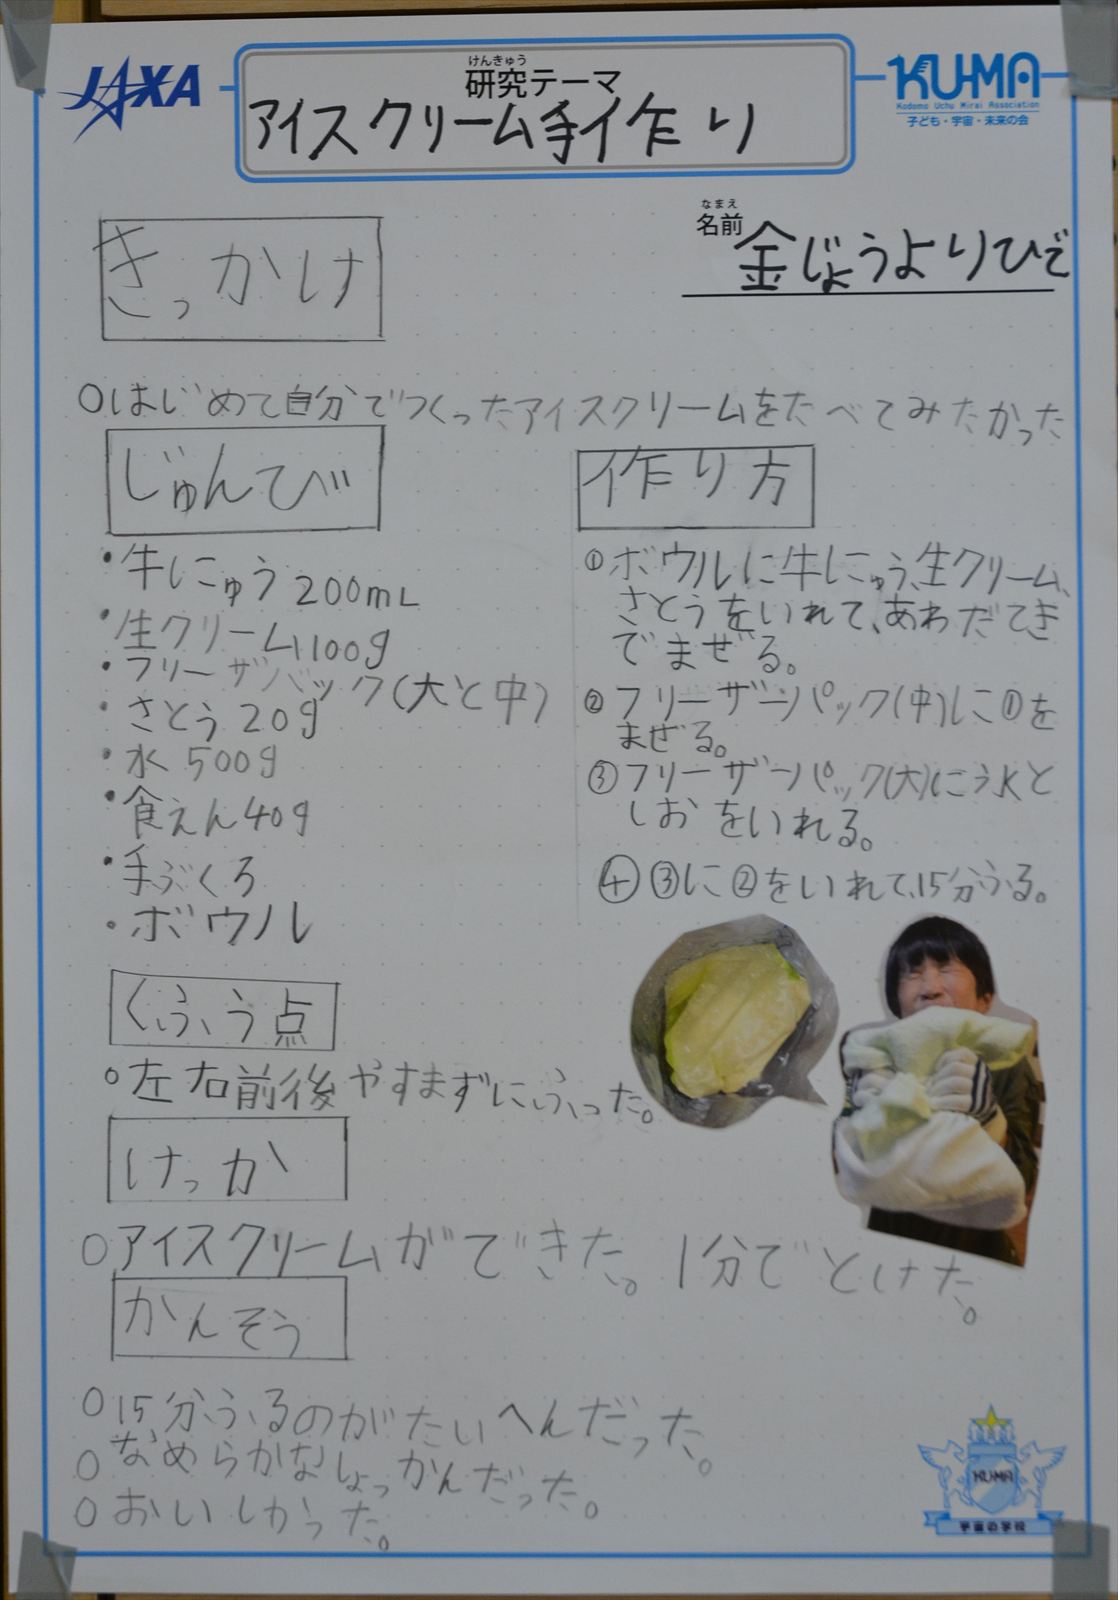 JAXA
けんきゅう
研究テーマ
アイスクリーム手作り
KU-MA
Kodomo Uchu Mirai Association
子ども・宇宙・未来の会
なまえ
名前
金じょうよりひで
きっかけ
○はじめて自分でつくったアイスクリームをたべてみたかった
じゅんび
・牛にゅう200mL
・生クリーム100g
・フリーザバック(大と中)
・さとう20g
・水500g
・食えん40g
・手ぶくろ
・ボウル
作り方
①ボウルに牛にゅう、生クリーム、
さとうをいれて、あわだてき
でまぜる。
②フリーザーパック(中)に①を
まぜる。
③フリーザーパック(大)にう水と
しおをいれる。
④③に②をいれて、15分ふる。
くふう点
○左右前後やすまずにふった。
けっか
○アイスクリームができた。1分でとけた。
かんそう
○15分ふるのがたいへんだった。
○なめらかなしょっかんだった。
○おいしかった。
KU-MA
宇宙の学校